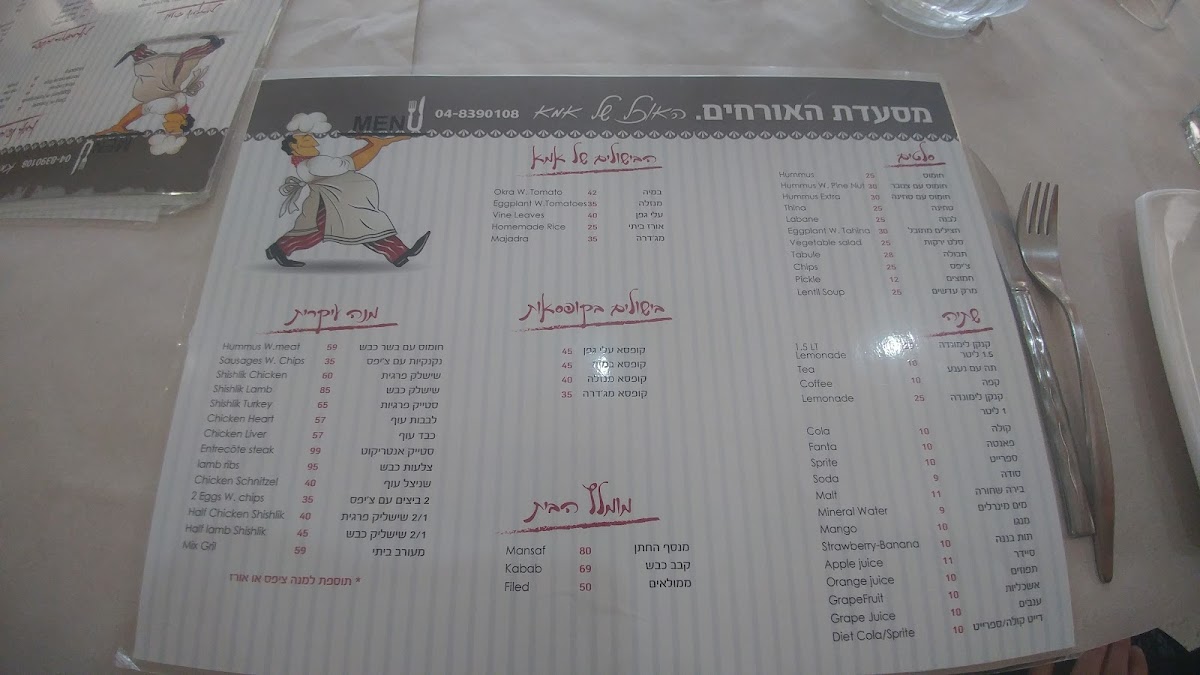 מסעדת האורחים. האוכל של אמא 04-8390108 MENU
סלטים
Hummus 25 חומוס
Hummus W. Pine Nut 30 חומוס עם צנובר
Hummus Extra 30 חומוס עם טחינה
Thina 25 טחינה
Labane 25 לבנה
Eggplant W. Tahina 30 חצילים מתובל
Vegetable salad 25 סלט ירקות
Tabule 28 תבולה
Chips 25 צ'יפס
Pickle 12 חמוצים
Lentil Soup 25 מרק עדשים
שתיה
1.5 LT
Lemonade קנקן לימונדה
1.5 ליטר
Tea תה עם נענע
Coffee 10 קפה
Lemonade 25 קנקן לימונדה
1 ליטר
Cola 10 קולה
Fanta 10 פאנטה
Sprite 10 ספרייט
Soda 9 סודה
Malt 11 בירה שחורה
Mineral Water 9 מים מינרלים
Mango 10 מנגו
Strawberry-Banana 10 תות בננה
Apple juice 11 סיידר
Orange juice 10 תפוזים
GrapeFruit 10 אשכליות
Grape Juice 10 ענבים
Diet Cola/Sprite 10 דייט קולה/ספרייט
הבישולים של אמא
Okra W. Tomato 42 במיה
Eggplant W.Tomatoes 35 מנזלה
Vine Leaves 40 עלי גפן
Homemade Rice 25 אורז ביתי
Majadra 35 מג'דרה
בישולים בקופסאות
קופסא עלי גפן 45
קופסא במיה 45
קופסא מנזלה 40
קופסא מג'דרה 35
מומלץ הבית
Mansaf 80 מנסף החתן
Kabab 69 קבב כבש
Filed 50 ממולאים
מנה עיקרית
Hummus W.meat 59 חומוס עם בשר כבש
Sausages W. Chips 35 נקנקיות עם צ'יפס
Shishlik Chicken 60 שישלק פרגית
Shishlik Lamb 85 שישלק כבש
Shishlik Turkey 65 סטייק פרגיות
Chicken Heart 57 לבבות עוף
Chicken Liver 57 כבד עוף
Entrecôte steak 99 סטייק אנטריקוט
lamb ribs 95 צלעות כבש
Chicken Schnitzel 40 שניצל עוף
2 Eggs W. chips 35 2 ביצים עם צ'יפס
Half Chicken Shishlik 40 2/1 שישליק פרגית
Half lamb Shishlik 45 2/1 שישליק כבש
Mix Gril 59 מעורב ביתי
* תוספת למנה ציפס או אורז